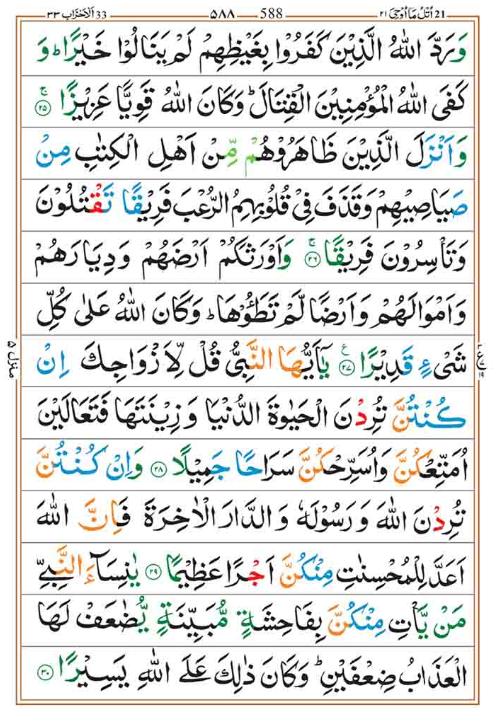 اَلْاَحْزَاب ٣٣ 33 ٥٨٨ 588 اُتْلُ مَآ اُوْحِیَ ٢١ 21
وَرَدَّ اللّٰهُ الَّذِیْنَ كَفَرُوْا بِغَیْظِهِمْ لَمْ یَنَالُوْا خَیْرًا ؕ وَ
كَفَی اللّٰهُ الْمُؤْمِنِیْنَ الْقِتَالَ ؕ وَكَانَ اللّٰهُ قَوِیًّا عَزِیْزًا ۚ ٢٥
وَاَنْزَلَ الَّذِیْنَ ظَاهَرُوْهُمْ مِّنْ اَهْلِ الْكِتٰبِ مِنْ
صَیَاصِیْهِمْ وَقَذَفَ فِیْ قُلُوْبِهِمُ الرُّعْبَ فَرِیْقًا تَقْتُلُوْنَ
وَتَاْسِرُوْنَ فَرِیْقًا ۚ ٢٦ وَاَوْرَثَكُمْ اَرْضَهُمْ وَدِیَارَهُمْ
وَاَمْوَالَهُمْ وَاَرْضًا لَّمْ تَطَـُٔوْهَا ؕ وَكَانَ اللّٰهُ عَلٰی كُلِّ
شَیْءٍ قَدِیْرًا ٢٧ ع یٰۤاَیُّهَا النَّبِیُّ قُلْ لِّاَزْوَاجِكَ اِنْ
كُنْتُنَّ تُرِدْنَ الْحَیٰوةَ الدُّنْیَا وَزِیْنَتَهَا فَتَعَالَیْنَ
اُمَتِّعْكُنَّ وَاُسَرِّحْكُنَّ سَرَاحًا جَمِیْلًا ٢٨ وَاِنْ كُنْتُنَّ
تُرِدْنَ اللّٰهَ وَرَسُوْلَهٗ وَالدَّارَ الْاٰخِرَةَ فَاِنَّ اللّٰهَ
اَعَدَّ لِلْمُحْسِنٰتِ مِنْكُنَّ اَجْرًا عَظِیْمًا ٢٩ یٰنِسَآءَ النَّبِیِّ
مَنْ یَّاْتِ مِنْكُنَّ بِفَاحِشَةٍ مُّبَیِّنَةٍ یُّضٰعَفْ لَهَا
الْعَذَابُ ضِعْفَیْنِ ؕ وَكَانَ ذٰلِكَ عَلَی اللّٰهِ یَسِیْرًا ٣٠
منزل ٥